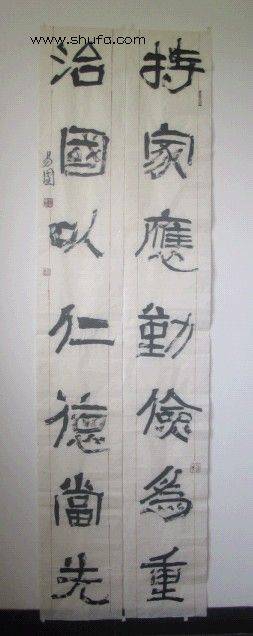 www.shufa.com
持家應勤儉為重
治國以仁德當先